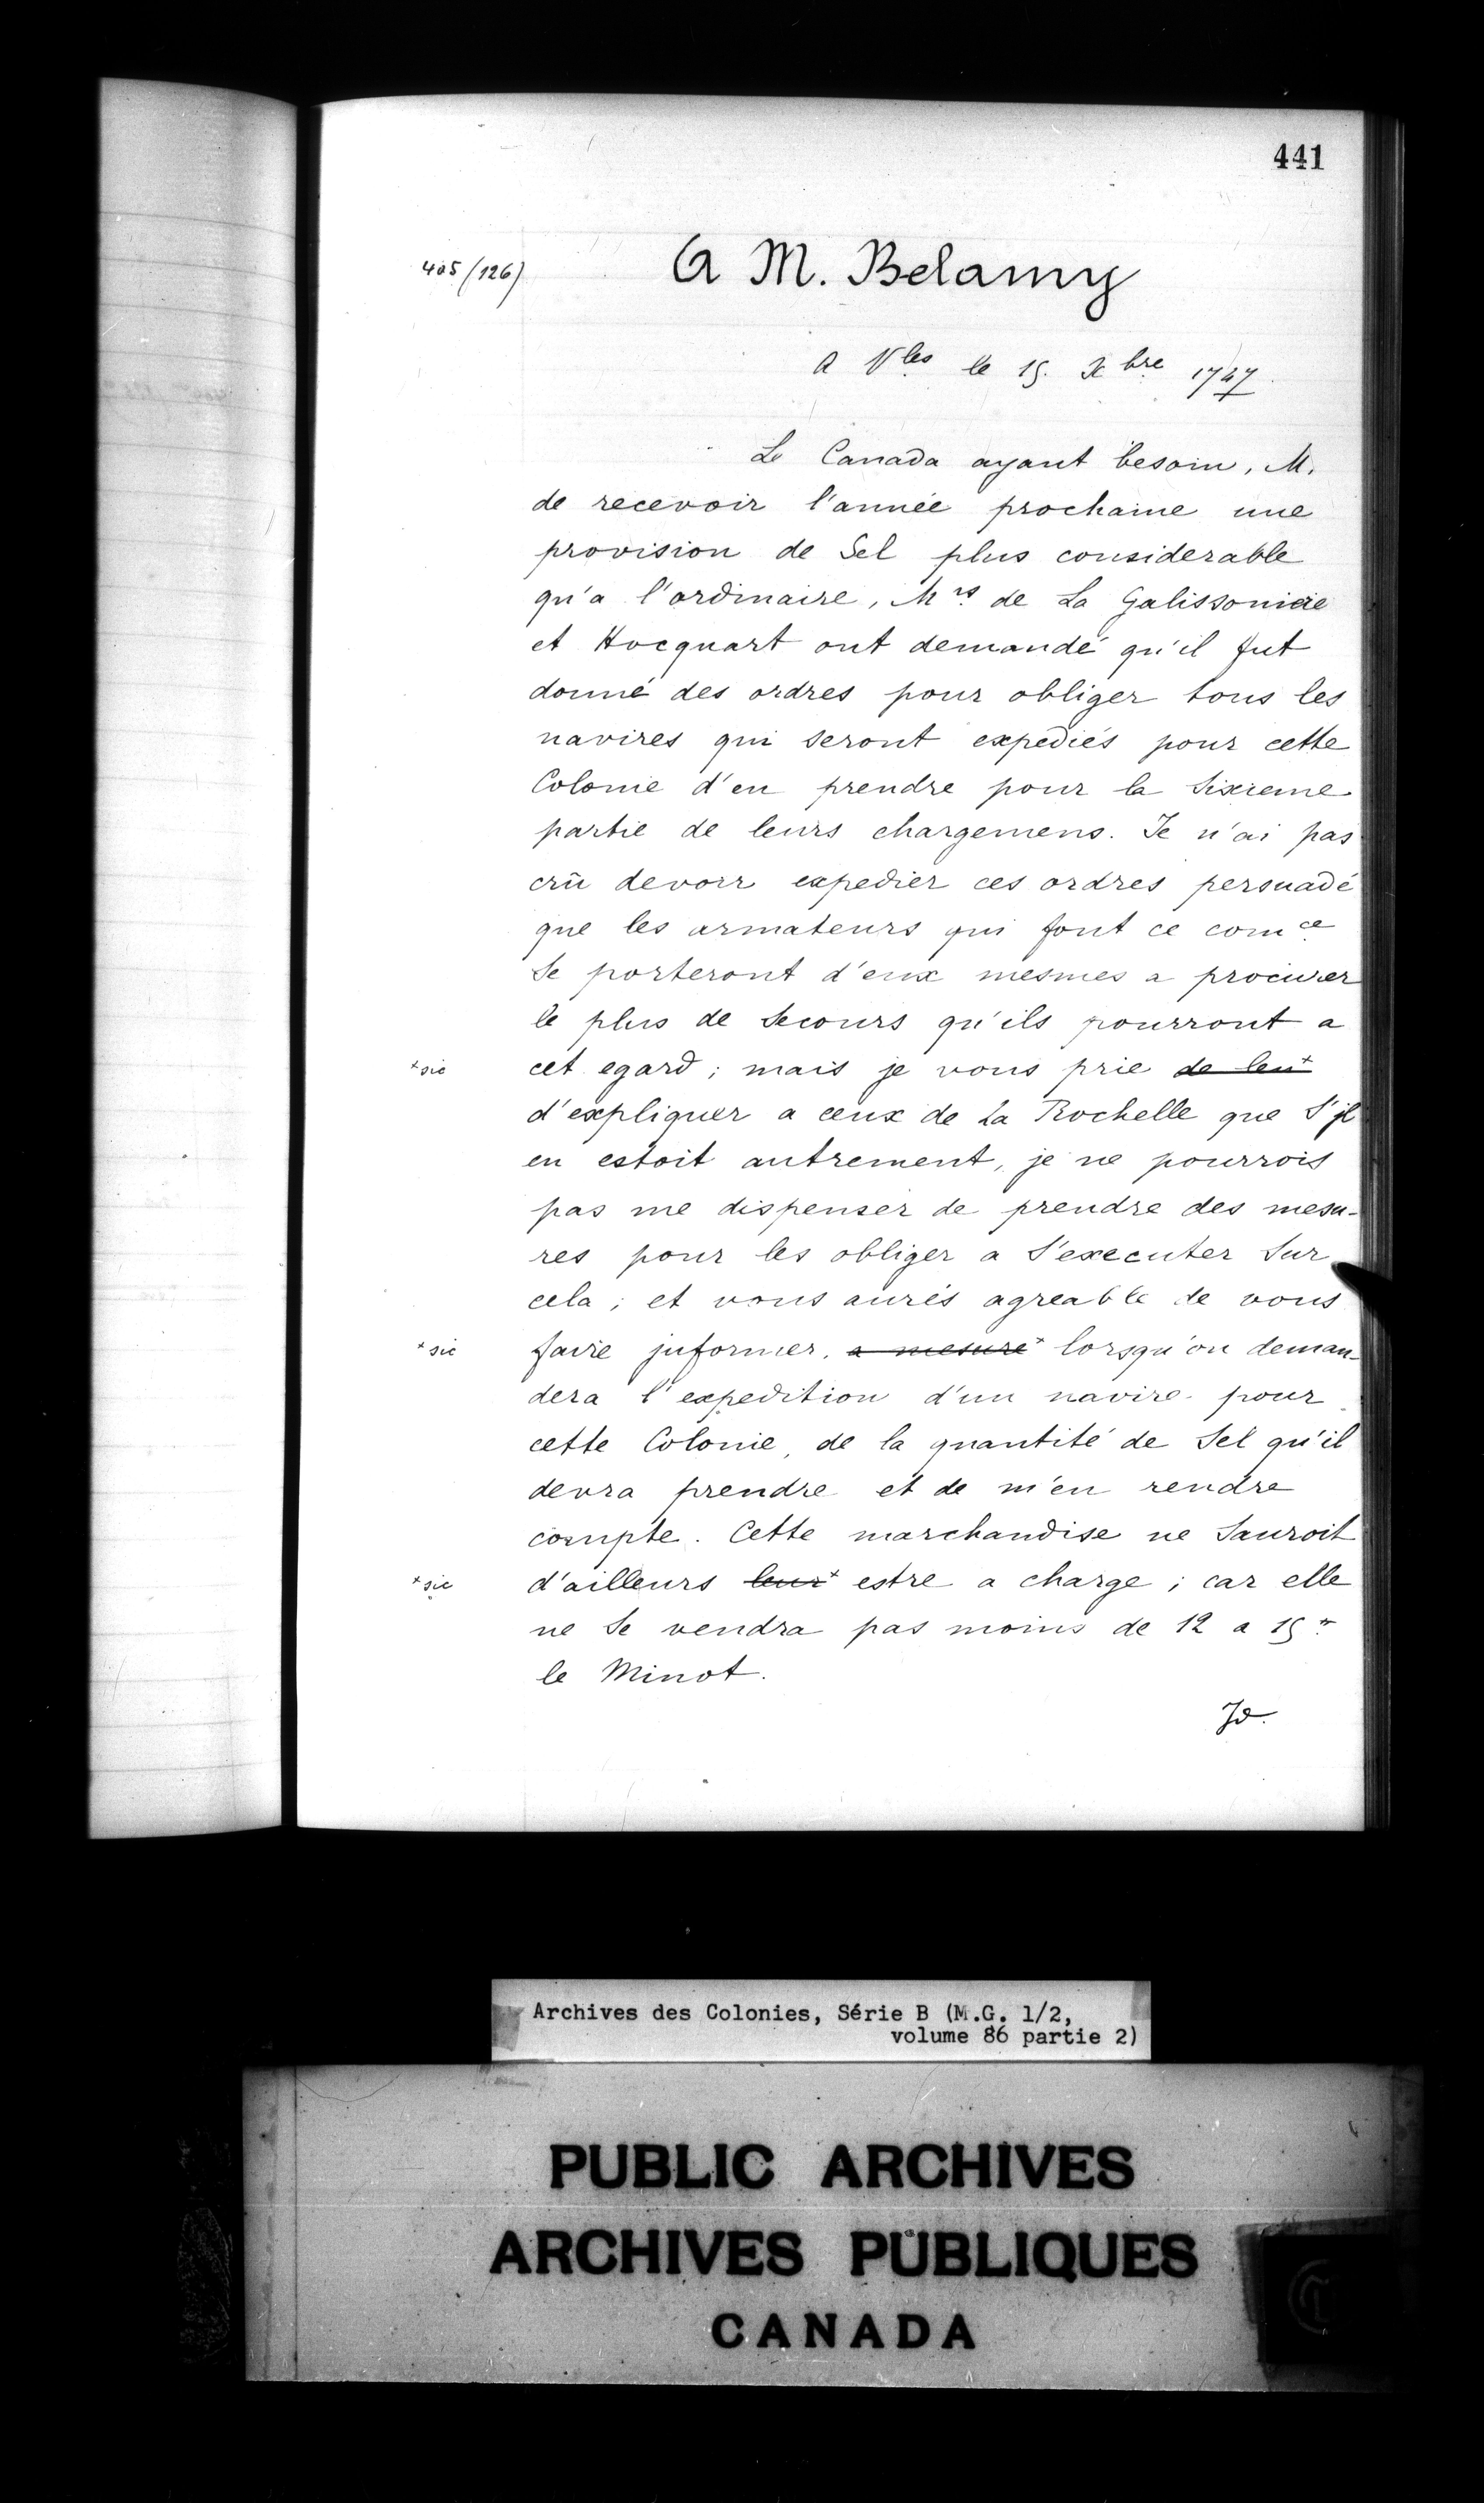 441
405 (126)
A M. Belamy
A Vles le 15. Xbre 1747
Le Canada ayant besoin, M.
de recevoir l'année prochaine une
provision de Sel plus considerable
qu'a l'ordinaire, Mrs de La Galissoniere
et Hocquart ont demandé qu'il fut
donné des ordres pour obliger tous les
navires qui seront expediés pour cette
Colonie d'en prendre pour la Sixieme
partie de leurs chargemens. Je n'ai pas
crû devoir expedier ces ordres persuadé
que les armateurs qui font ce comce
Se porteront d'eux mesmes a procurer
le plus de Secours qu'ils pourront a
+sic cet egard ; mais je vous prie de leu+
d'expliquer a ceux de La Rochelle que S'jl
en estoit autrement, je ne pourrois
pas me dispenser de prendre des mesu-
res pour les obliger a S'executer Sur
cela ; et vous aurés agreable de vous
+sic faire jnformer, a mesure+ lorsqu'on deman-
dera l'expedition d'un navire pour
cette Colonie, de la quantité de Sel qu'il
devra prendre et de m'en rendre
compte. Cette marchandise ne Sauroit
+sic d'ailleurs leur+ estre a charge ; car elle
ne Se vendra pas moins de 12 a 15
le Minot.
Jd.
Archives des Colonies, Série B (M.G. 1/2,
volume 86 partie 2)
PUBLIC ARCHIVES
ARCHIVES PUBLIQUES
CANADA